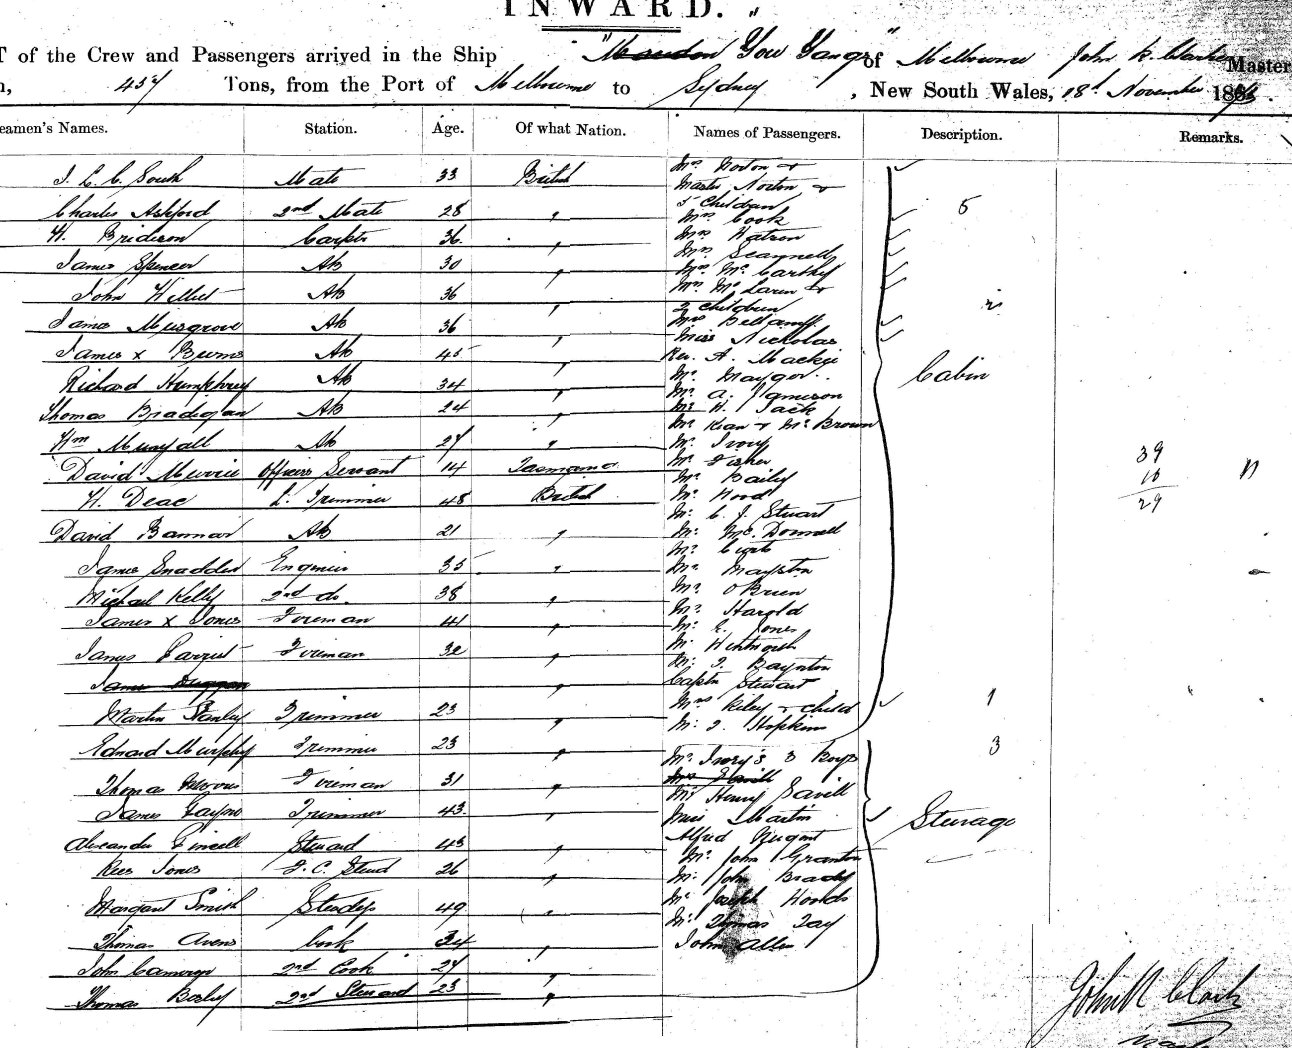 INWARD.
T of the Crew and Passengers arrived in the Ship "You Yangs" of Melbourne John R. Clark Master
457 Tons, from the Port of Melbourne to Sydney, New South Wales, 18th November 18
eamen's Names. Station. Age. Of what Nation. Names of Passengers. Description. Remarks.
J. L. C. South Mate 33 British
Charles Ashford 2nd Mate 28 "
W. Carptr 36 "
James Spencer AB 30 "
John AB 36 "
James Musgrove AB 36 "
James x Burns AB 45 "
Richard Humphrey AB 34 "
Thomas Bradigan AB 24 "
Wm AB 27 "
David Murrie Officers Servant 14 Tasmania
W. Deac Trimmer 48 British
David Bannar AB 21 "
James Snadden Engineer 35 "
Michael Kelly 2nd do. 38 "
James x Jones Fireman 41 "
James Fireman 32 "
James Duggan "
Martin Stanley Trimmer 23 "
Edward Murphy Trimmer 23 "
Thomas Fireman 31 "
James Trimmer 43 "
Alexander Steward 43 "
Rees Jones F. C. Stewd 26 "
Margaret Smith Stewdss 49 "
Thomas Avens Cook 34 "
John Cameron 2nd Cook 27 "
Thomas 2nd Steward 23 "
Mrs Norton &
Master Norton &
5 Children 5
Mrs Cook
Mrs Watson
Mrs Scannelly
Mrs McCarthy
Mrs McLaren &
2 Children 2
Mrs
Miss Nicholas
Rev. A. Mackie
Mr Mayger Cabin
Mr A. Jameson
Mr W. Jack
Mr Kean & Mr Brown
Mr Ivory
Mr Fisher
Mr Baily
Mr Wood
Mr C. J. Stuart
Mr McDonnell
Mr
Mr Mayston
Mr O'Brien
Mr Harold
Mr Jones
Mr Wentworth
Mr Baynton
Captn Stewart
Mrs Riley & child 1
Mr J. Hopkins
Mr Ivory's 3 Boys 3
Mr Savill
Mr Henry Savill
Miss Martin Steerage
Alfred Nugent
Mr John Granton
Mr John Brady
Mr Joseph
Mr Thomas
John Allen
39
10
29
John R Clark